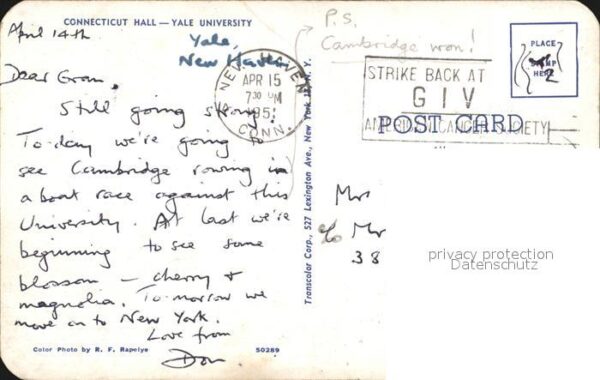 CONNECTICUT HALL — YALE UNIVERSITY
April 14th
Yale,
New Haven
P.S.
Cambridge won!
Dear Gran,
Still going strong!
To-day we're going to
see Cambridge rowing in
a boat race against this
University. At last we're
beginning to see some
blossom — cherry &
magnolia. To-morrow we
move on to New York.
Love from
Don
Color Photo by R. F. Rapelye
50289
NEW HAVEN
APR 15
7 30 PM
1951
CONN.
STRIKE BACK AT
GIV
AMERICAN CANCER SOCIETY
PLACE
HERE
2
POST CARD
Transcolor Corp., 527 Lexington Ave., New York 17, N. Y.
Mr
c/o Mr
38
privacy protection
Datenschutz